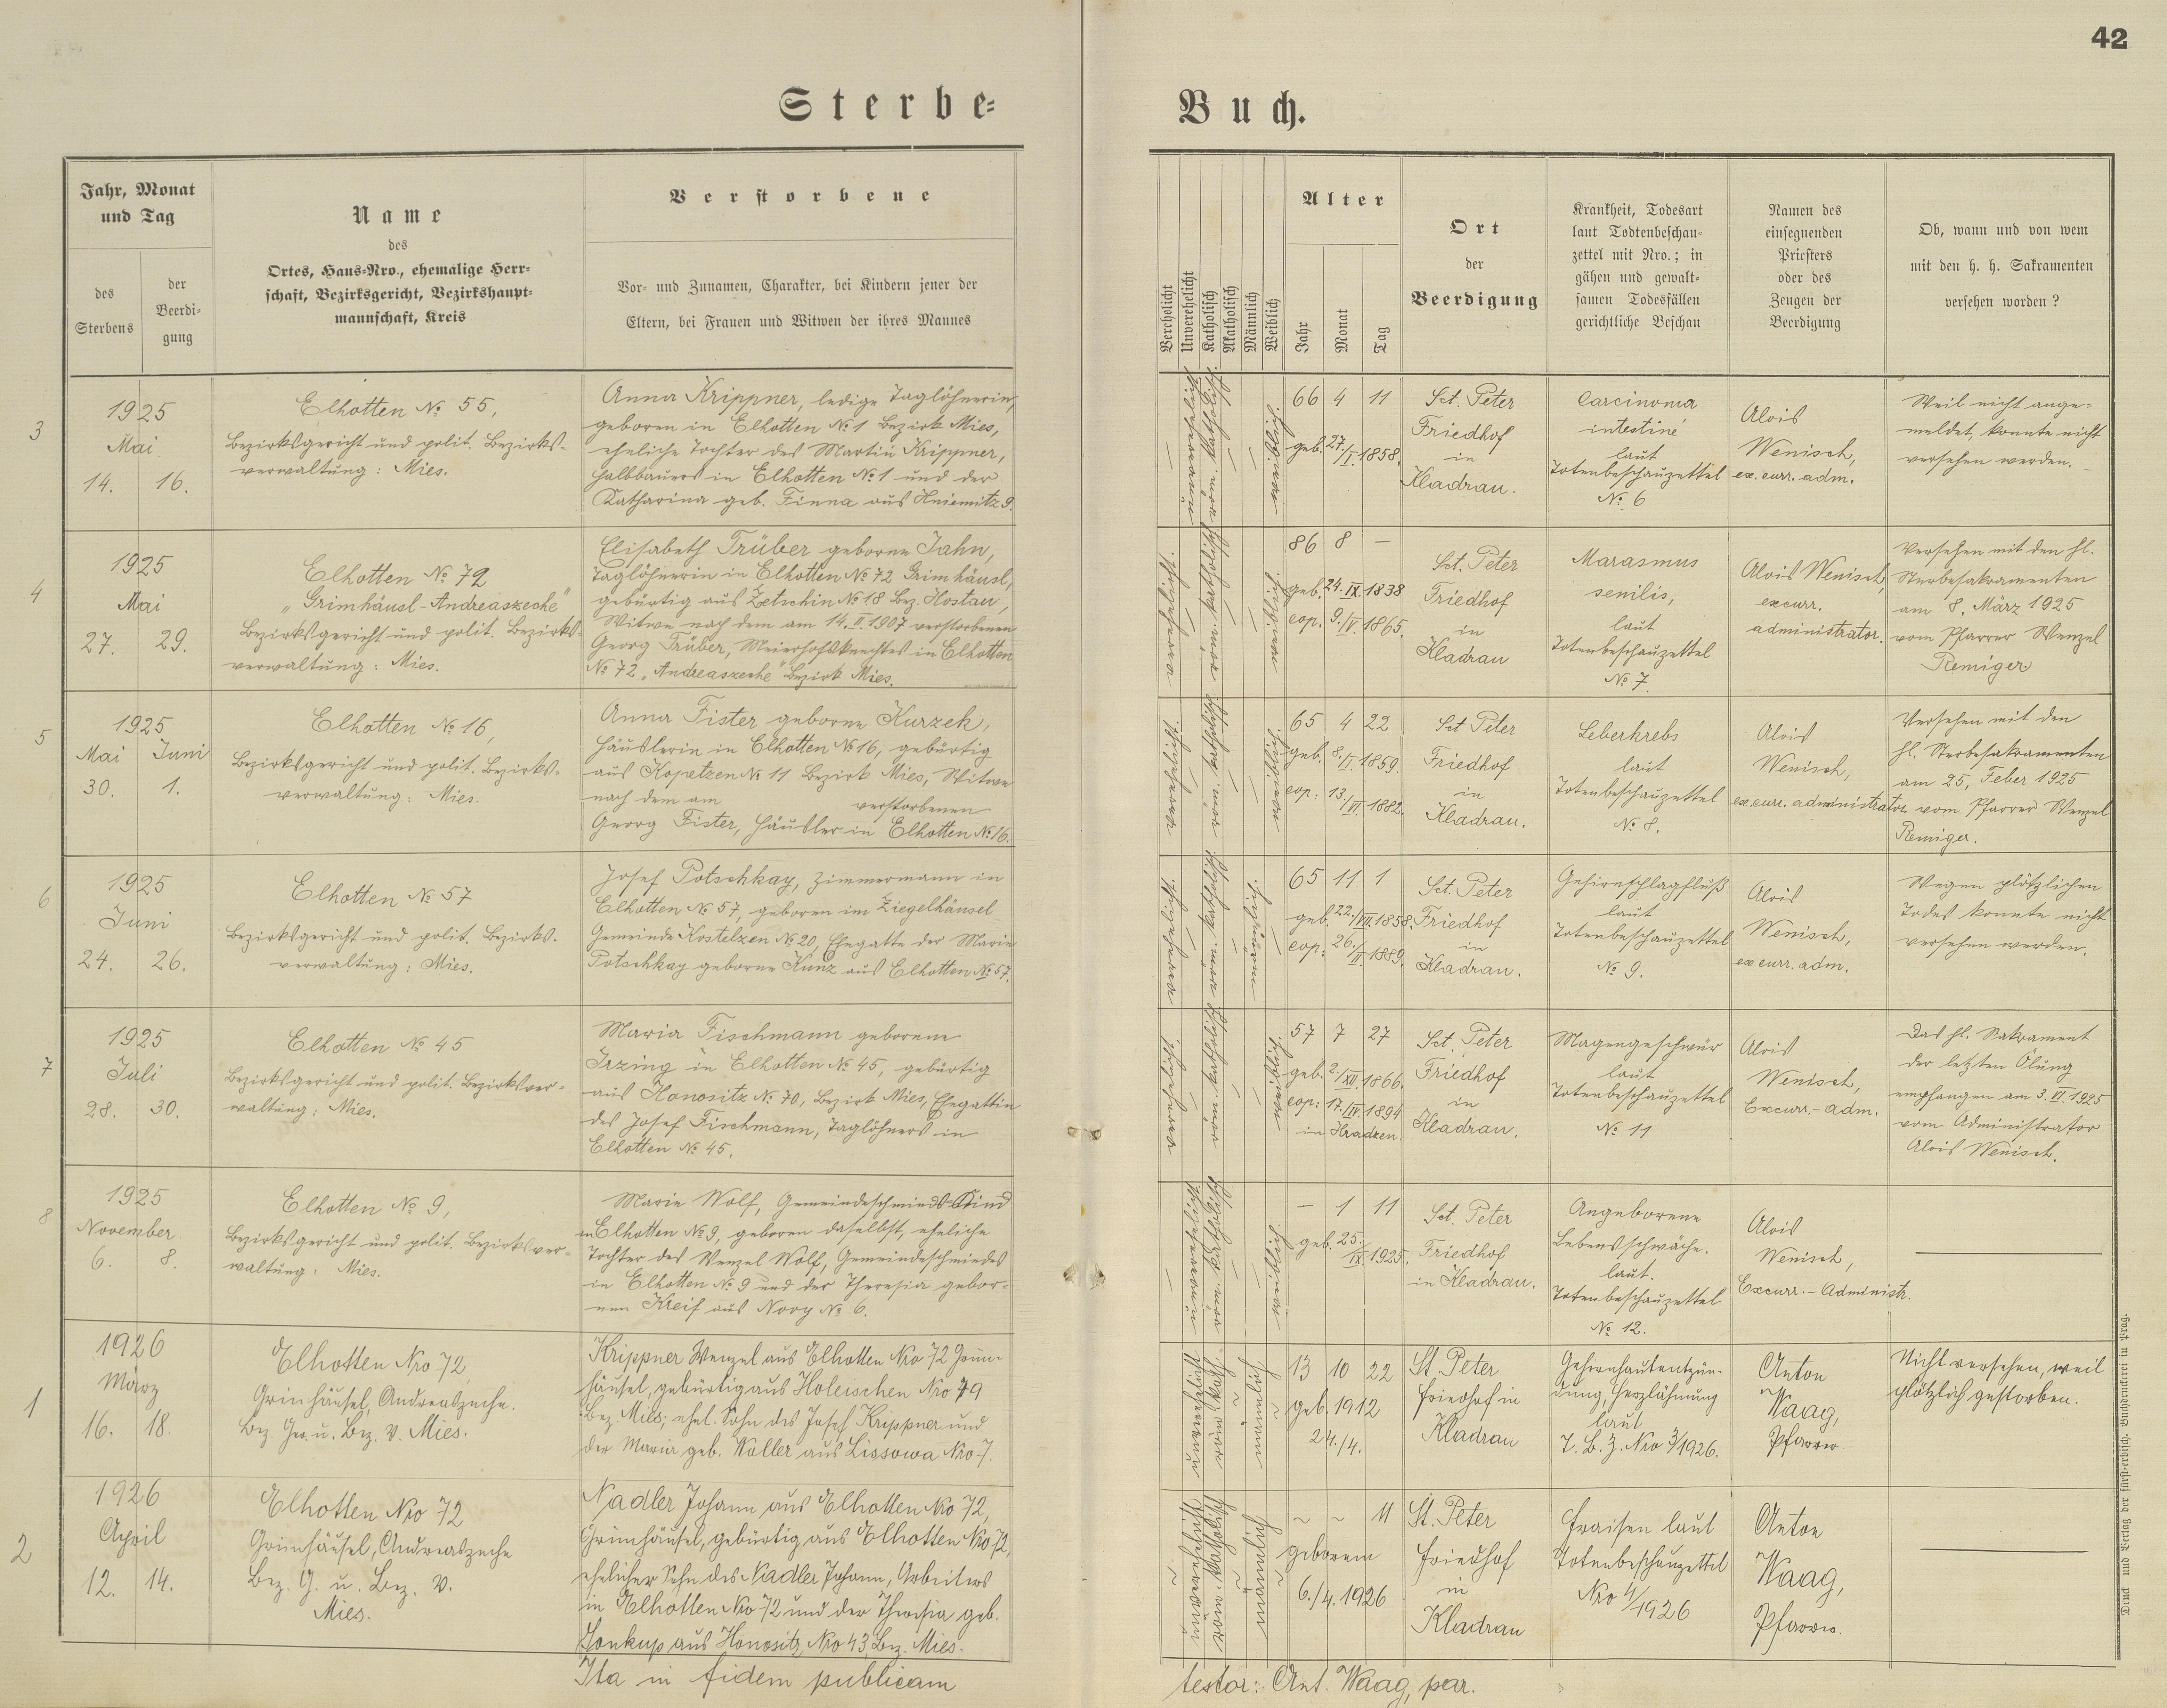 42
Sterbe=
Buch.
Jahr, Monat
und Tag
des
Sterbens
der
Beerdi-
gung
Name
des
Ortes, Haus-Nro., ehemalige Herr-
schaft, Bezirksgericht, Bezirkshaupt-
mannschaft, Kreis
Verstorbene
Vor- und Zunamen, Charakter, bei Kindern jener der
Eltern, bei Frauen und Witwen der ihres Mannes
Verehelicht
Unverehelicht
Katholisch
Akatholisch
Männlich
Weiblich
Alter
Jahr
Monat
Tag
Ort
der
Beerdigung
Krankheit, Todesart
laut Todtenbeschau-
zettel mit Nro.; in
gähen und gewalt-
samen Todesfällen
gerichtliche Beschau
Namen des
einsegnenden
Priesters
oder des
Zeugen der
Beerdigung
Ob, wann und von wem
mit den h. h. Sakramenten
versehen worden?
3
1925
Mai
14. 16.
Elhotten № 55,
Bezirksgericht und polit. Bezirks-
verwaltung: Mies.
Anna Krippner, ledige Taglöhnerin,
geboren in Elhotten № 1 Bezirk Mies,
eheliche Tochter des Martin Krippner,
Halbbauers in Elhotten № 1 und der
Katharina geb. Finna aus Hniemitz 9.
unverehelicht
röm. katholisch
weiblich
66 4 11
geb. 27/I. 1858.
Sct. Peter
Friedhof
in
Kladrau.
Carcinoma
intestine
laut
Totenbeschauzettel
№ 6
Alois
Wenisch,
ex. curr. adm.
Weil nicht ange-
meldet, konnte nicht
versehen werden.
4
1925
Mai
27. 29.
Elhotten № 72
„Grimhäusl-Andreaszeche"
Bezirksgericht und polit. Bezirks-
verwaltung: Mies.
Elisabeth Trüber geborne Jahn,
Taglöhnerin in Elhotten № 72 Grimhäusl,
gebürtig aus Zetschin № 18 Bez. Hostau,
Witwe nach dem am 14. II. 1907 verstorbenen
Georg Trüber, Meierhofsknechtes in Elhotten
№ 72 „Andreaszeche" Bezirk Mies.
verehelicht
röm. katholisch
weiblich
86 8 —
geb. 24. IX. 1838
cop. 9./IV. 1865.
Sct. Peter
Friedhof
in
Kladrau
Marasmus
senilis,
laut
Totenbeschauzettel
№ 7.
Alois Wenisch,
excurr.
administrator.
Versehen mit den hl.
Sterbesakramenten
am 8. März 1925
vom Pfarrer Wenzel
Remiger
5
1925
Mai Juni
30. 1.
Elhotten № 16,
Bezirksgericht und polit. Bezirks-
verwaltung: Mies.
Anna Fister geborne Kurzek,
Häuslerin in Elhotten № 16, gebürtig
aus Kopetzen № 11 Bezirk Mies, Witwe
nach dem am verstorbenen
Georg Fister, Häusler in Elhotten № 16.
verehelicht
röm. katholisch
weiblich
65 4 22
geb. 8./I. 1859.
cop: 13./VI. 1882.
Sct Peter
Friedhof
in
Kladrau.
Leberkrebs
laut
Totenbeschauzettel
№ 8.
Alois
Wenisch,
ex. curr. administrator
Versehen mit den
hl. Sterbesakramenten
am 25. Feber 1925
vom Pfarrer Wenzel
Remiger.
6
1925
Juni
24. 26.
Elhotten № 57
Bezirksgericht und polit. Bezirks-
verwaltung: Mies.
Josef Potschkay, Zimmermann in
Elhotten № 57, geboren im Ziegelhäusel
Gemeinde Kostelzen № 20, Ehegatte der Marie
Potschkay geborne Kunz aus Elhotten № 57.
verehelicht
röm. katholisch
männlich
65 11 1
geb. 22./VII. 1858.
cop: 26./II. 1889.
Sct. Peter
Friedhof
in
Kladrau.
Gehirnschlagfluß
laut
Totenbeschauzettel
№ 9.
Alois
Wenisch,
ex curr. adm.
Wegen plötzlichen
Todes konnte nicht
versehen werden.
7
1925
Juli
28. 30.
Elhotten № 45
Bezirksgericht und polit. Bezirksver-
waltung: Mies.
Maria Fischmann geborene
Irzing in Elhotten № 45, gebürtig
aus Honositz № 70, Bezirk Mies, Ehegattin
des Josef Fischmann, Taglöhners in
Elhotten № 45.
verehelicht
röm. katholisch
weiblich
57 7 27
geb. 2./XII. 1866.
cop: 17./IV. 1894
in Hradzen.
Sct. Peter
Friedhof
in
Kladrau.
Magengeschwür
laut
Totenbeschauzettel
№ 11
Alois
Wenisch,
Excurr.-adm.
Das hl. Sakrament
der letzten Ölung
empfangen am 3. VI. 1925
vom Administrator
Alois Wenisch.
8
1925
November
6. 8.
Elhotten № 9,
Bezirksgericht und polit. Bezirksver-
waltung: Mies.
Marie Wolf, Gemeindeschmieds-Kind
in Elhotten № 9, geboren daselbst, eheliche
Tochter des Wenzel Wolf, Gemeindeschmiedes
in Elhotten № 9 und der Theresia gebor-
nen Kreif aus Novy № 6.
unverehelicht
röm. katholisch
weiblich
— 1 11
geb. 25./IX. 1925.
Sct. Peter
Friedhof
in Kladrau.
Angeborene
Lebensschwäche.
laut.
Totenbeschauzettel
№ 12.
Alois
Wenisch,
Excurr.-Administr.
1
1926
März
16. 18.
Elhotten Nro 72
Grünhäusel, Andreaszeche.
Bez. Ger. u. Bez. V. Mies.
Krippner Wenzel aus Elhotten Nro 72 Grün-
häusel, gebürtig aus Holeischen Nro 79
Bez. Mies; ehel. Sohn des Josef Krippner und
der Maria geb. Koller aus Lissowa Nro 7.
unverehelicht
röm. kath.
männlich
13 10 22
geb. 1912
24./4.
St. Peter
Friedhof in
Kladrau
Gehirnhautentzün-
dung, Herzlähmung
laut
T. B. Z. Nro 3/1926.
Anton
Waag,
Pfarrer.
Nicht versehen, weil
plötzlich gestorben.
2
1926
April
12. 14.
Elhotten Nro 72
Grünhäusel, Andreaszeche
Bez. G. u. Bez. V.
Mies.
Nadler Johann aus Elhotten Nro 72,
Grünhäusel, gebürtig aus Elhotten Nro 72,
ehelicher Sohn des Nadler Johann, Arbeiters
in Elhotten Nro 72 und der Theresia geb.
Sonkup aus Honositz Nro 43 Bez. Mies.
unverehelicht
röm. katholisch
männlich
~ ~ 11
geboren
6./4. 1926
St. Peter
Friedhof
in
Kladrau
Fraisen laut
Totenbeschauzettel
Nro 4/1926
Anton
Waag,
Pfarrer.
Ita in fidem publicam
testor: Ant. Waag, par.
Druck und Verlag der fürst-erzbisch. Buchdruckerei in Prag.